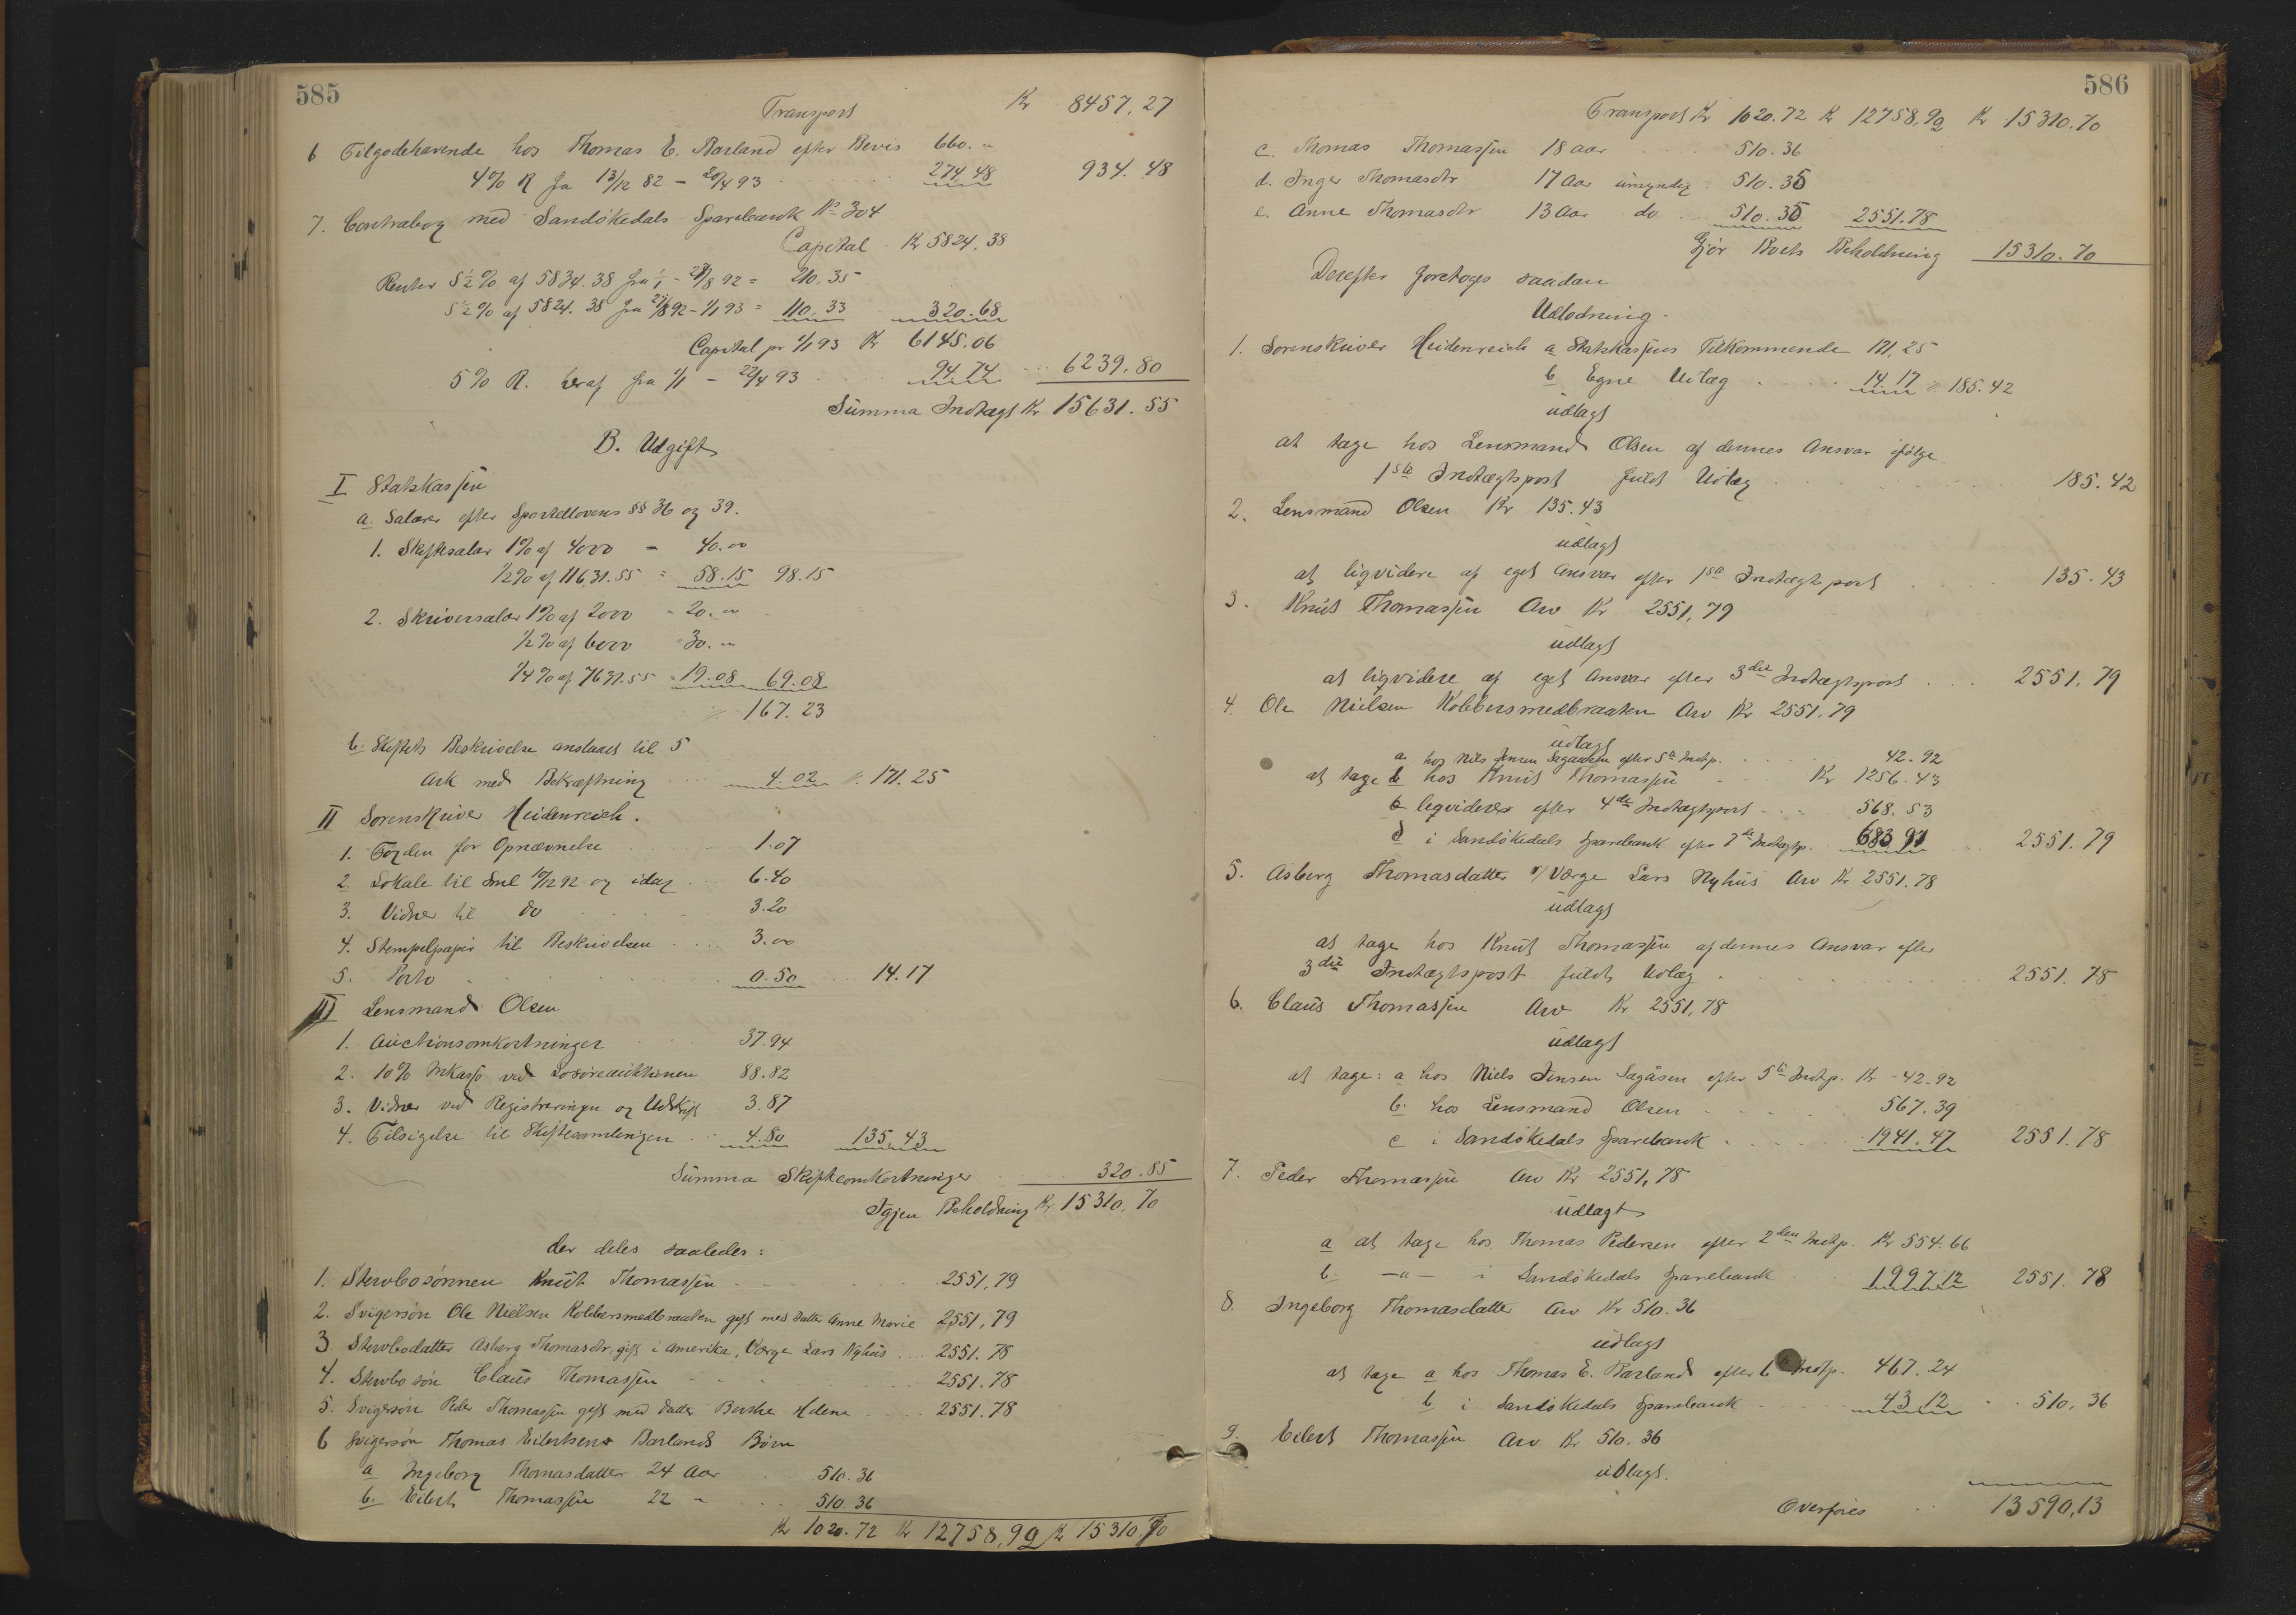 585
Transport Kr 8457.27
6 Tilgodehavende hos Thomas E. Barland efter Bevis 660. "
4% R fra 13/12 82 - 20/4 93 274.48 934.48
7. Contrabog med Sandøkedals Sparebank No 304
Capital Kr 5824.38
Renter 5½% af 5834.38 fra 1/1 - 27/8 92 = 210.35
5½% af 5824.38 fra 27/8 92 - 1/1 93 = 110.33 320.68
Capital pr 1/1 93 Kr 6145.06
5% R. heraf fra 1/1 - 22/4 93 94.74 6239.80
Summa Indtægt Kr 15631.55
B. Udgift
I Statskassen
a. Salærer efter Sportellovens §§ 36 og 39.
1. Skiftesalær 1% af 4000 = 40.00
½% af 11631.55 = 58.15 98.15
2. Skriversalær 1% af 2000 = 20. "
½% af 6000 = 30. "
¼% af 7631.55 = 19.08 69.08
167.23
b. Skiftets Beskrivelse anslaaet til 5
Ark med Bekræftning 4.02 171.25
II Sorenskriver Heidenreich.
1. Fogden for Opnævnelse 1.07
2. Lokale til Saml 10/12 92 og idag 6.40
3. Vidner til do 3.20
4. Stempelpapir til Beskrivelsen 3.00
5. Porto 0.50 14.17
III Lensmand Olsen
1. Auctionsomkostninger 37.94
2. 10% Inkasso ved Løsøreauktionen 88.82
3. Vidner ved Registreringen og Udskift 3.87
4. Tilsigelse til Skiftesamlingen 4.80 135.43
Summa Skifteomkostninger 320.85
Igjen Beholdning Kr 15310.70
der deles saaledes:
1. Stervbosønnen Knut Thomassen 2551.79
2. Svigersøn Ole Nielsen Kobbersmedbraaten gift med datter Anne Marie 2551.79
3 Stervbodatter Asberg Thomasdtr. gift i Amerika, Værge Lars Nyhus 2551.78
4. Stervbosøn Claus Thomassen 2551.78
5. Svigersøn Peder Thomassen gift med datter Berthe Helene 2551.78
6 Svigersøn Thomas Eilertsens Barlands Børn
a Ingeborg Thomasdatter 24 Aar 510.36
b. Eilert Thomassen 22 " 510.36
Kr 1020.72 Kr 12758,92 Kr 15310.70
586
Transport Kr 1020.72 Kr 12758.92 Kr 15310.70
c. Thomas Thomassen 18 aar 510.36
d. Inger Thomasdtr 17 Aar umyndig 510.35
e. Anne Thomasdtr 13 Aar do 510.35 2551.78
Gjør Boets Beholdning 15310.70
Derefter foretoges saadan
Udlodning.
1. Sorenskriver Heidenreich a Statskassens Tilkommende 171.25
b Egne Udlæg 14.17 185.42
udlagt
at tage hos Lensmand Olsen af dennes Ansvar ifølge
1ste Indtægtspost fuldt Udlæg 185.42
2. Lensmand Olsen Kr 135.43
udlagt
at liqvidere af eget Ansvar efter 1ste Indtægtspost 135.43
3. Knut Thomassen Arv Kr 2551,79
udlagt
at liqvidere af eget Ansvar efter 3die Indtægtspost 2551.79
4. Ole Nielsen Kobbersmedbraaten Arv Kr 2551.79
udlagt
a hos Niels Jensen Sagaasen efter 5te Indtp. 42.92
at tage b hos Knut Thomassen Kr 1256.43
c liqviderer efter 4de Indtægtspost 568.53
d i Sandøkedals Sparebank efter 7de Indtægtp. 683 91 2551.79
5. Asberg Thomasdatter v/ Værge Lars Nyhus Arv Kr 2551.78
udlagt
at tage hos Knut Thomassen af dennes Ansvar efter
3die Indtægtspost fuldt Udlæg 2551.78
6. Claus Thomassen Arv Kr 2551,78
udlagt
at tage: a hos Niels Jensen Sagåsen efter 5te Indtp. Kr 42.92
b. hos Lensmand Olsen 567.39
c i Sandøkedals Sparebank 1941.47 2551.78
7. Peder Thomassen Arv Kr 2551,78
udlagt
a at tage hos Thomas Pedersen efter 2den Indtp. Kr 554.66
b. —"— i Sandøkedals Sparebank 1997.12 2551.78
8. Ingeborg Thomasdatter Arv Kr 510.36
udlagt
at tage a hos Thomas E. Barland efter 6te Indtp. 467.24
b i Sandøkedals Sparebank 43.12 510,36
9. Eilert Thomassen Arv Kr 510.36
udlagt.
Overføres 13590,13